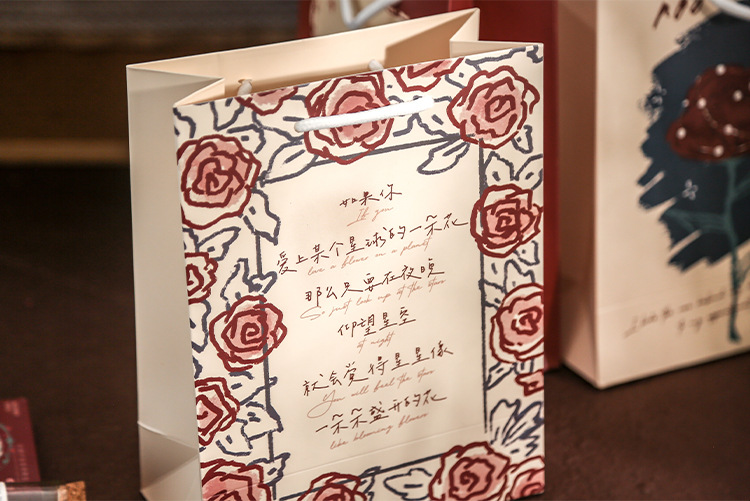 如果你
If you
爱上某个星球的一朵花
love a flower on a planet
那么只要在夜晚
So just look up at the stars
仰望星空
at night
就会觉得星星像
You will feel the stars
一朵朵盛开的花
like blooming flowers